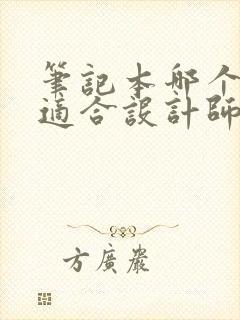 筆記本哪个
適合設計師
方廣嚴